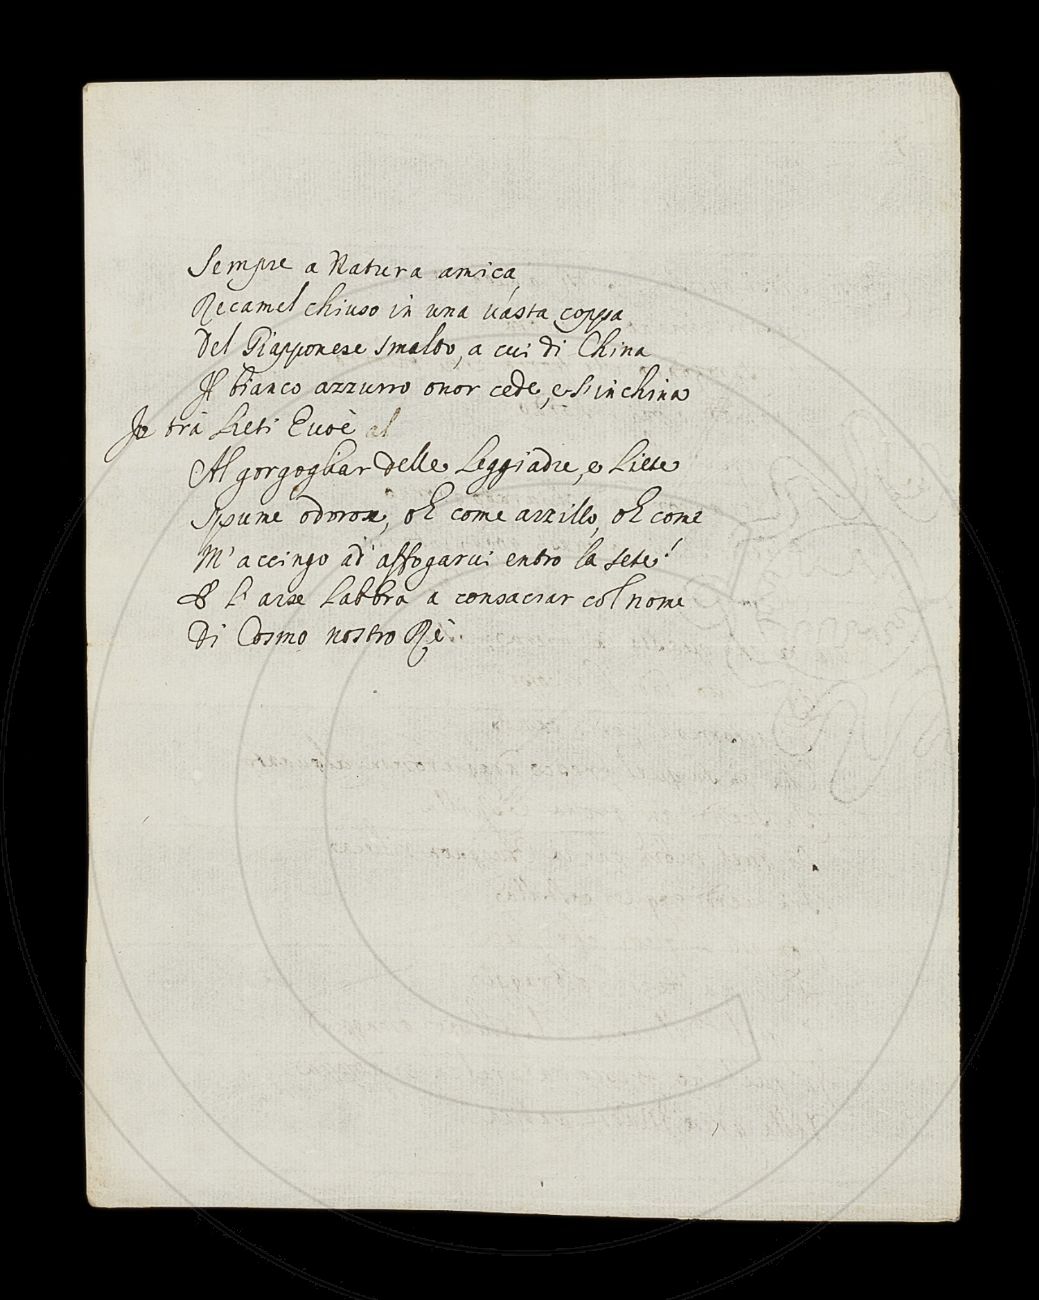 Sempre a Natura amica,
Recamel chiuso in una vasta coppa
Del Giapponese smalto, a cui di China
Il bianco azzurro onor cede, e s'inchina
Io trà lieti Evoè al
Al gorgogliar delle leggiadre, e liete
Spume odorose, oh come arzillo, oh come
M'accingo ad' affogarvi entro la sete!
E l'arse labbra a consacrar col nome
Di Cosmo nostro Rè